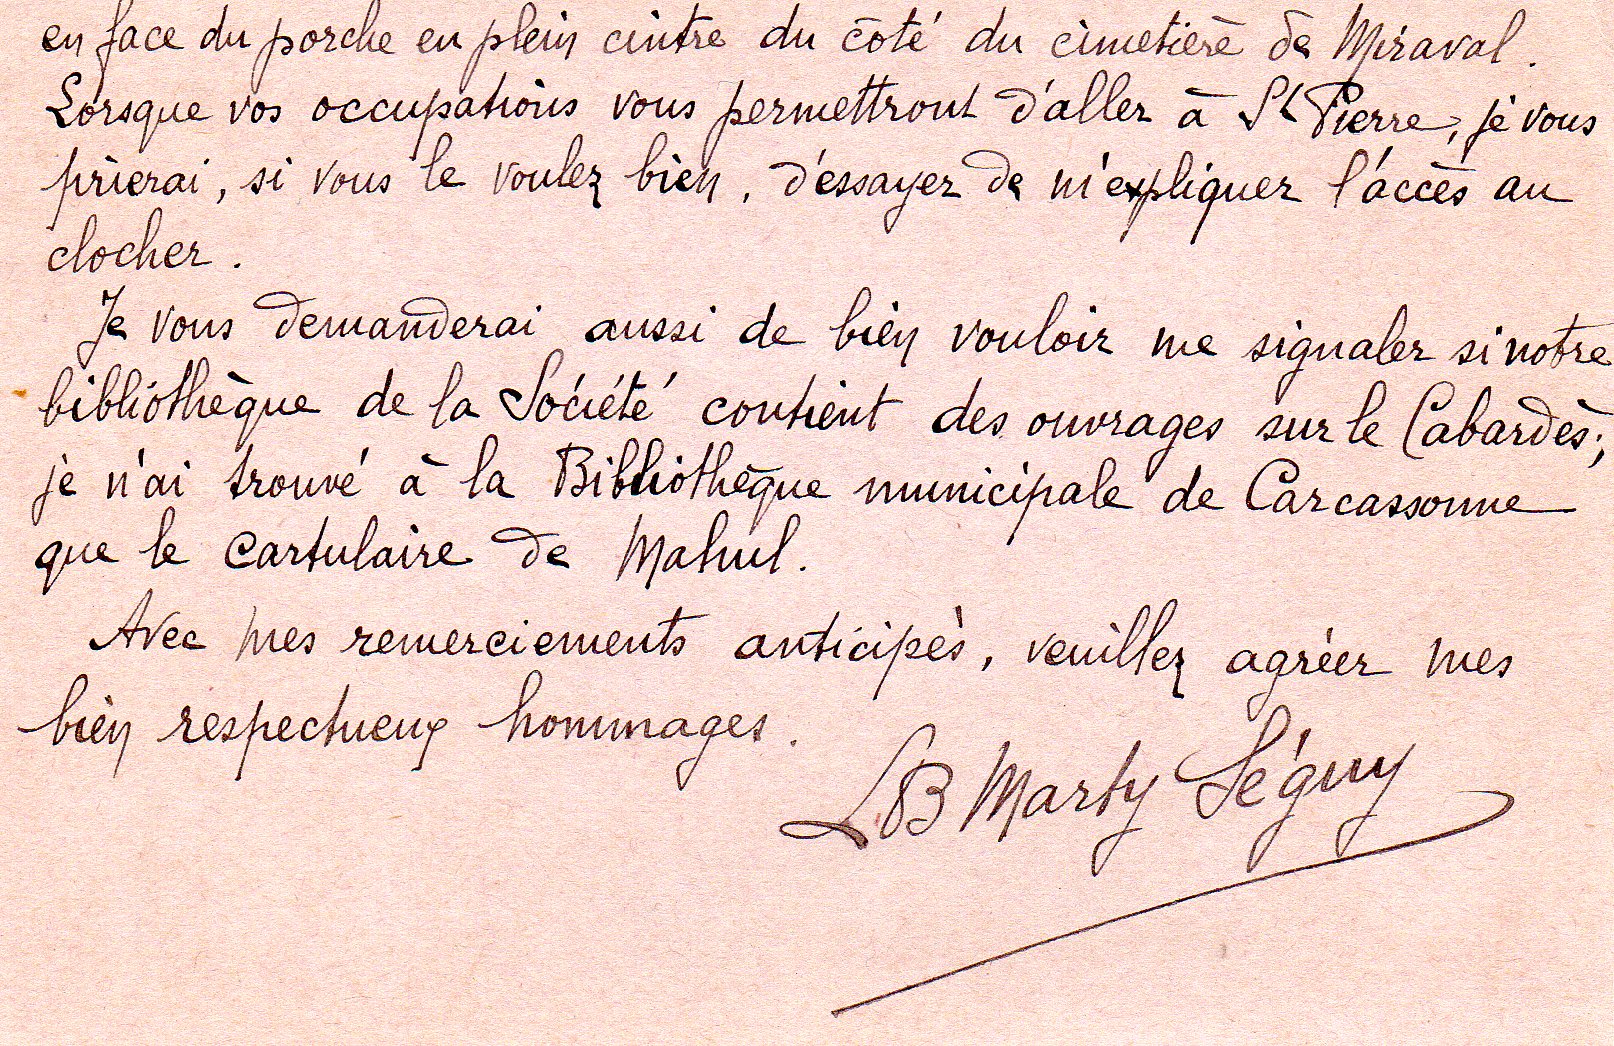 en face du porche en plein cintre du côté du cimetière de Miraval.
Lorsque vos occupations vous permettront d'aller à St Pierre, je vous
prierai, si vous le voulez bien, d'essayer de m'expliquer l'accès au
clocher.
Je vous demanderai aussi de bien vouloir me signaler si notre
bibliothèque de la Société contient des ouvrages sur le Cabardès;
je n'ai trouvé à la Bibliothèque municipale de Carcassonne
que le cartulaire de Mahul.
Avec mes remerciements anticipés, veuillez agréer mes
bien respectueux hommages.
LB Marty Séguy